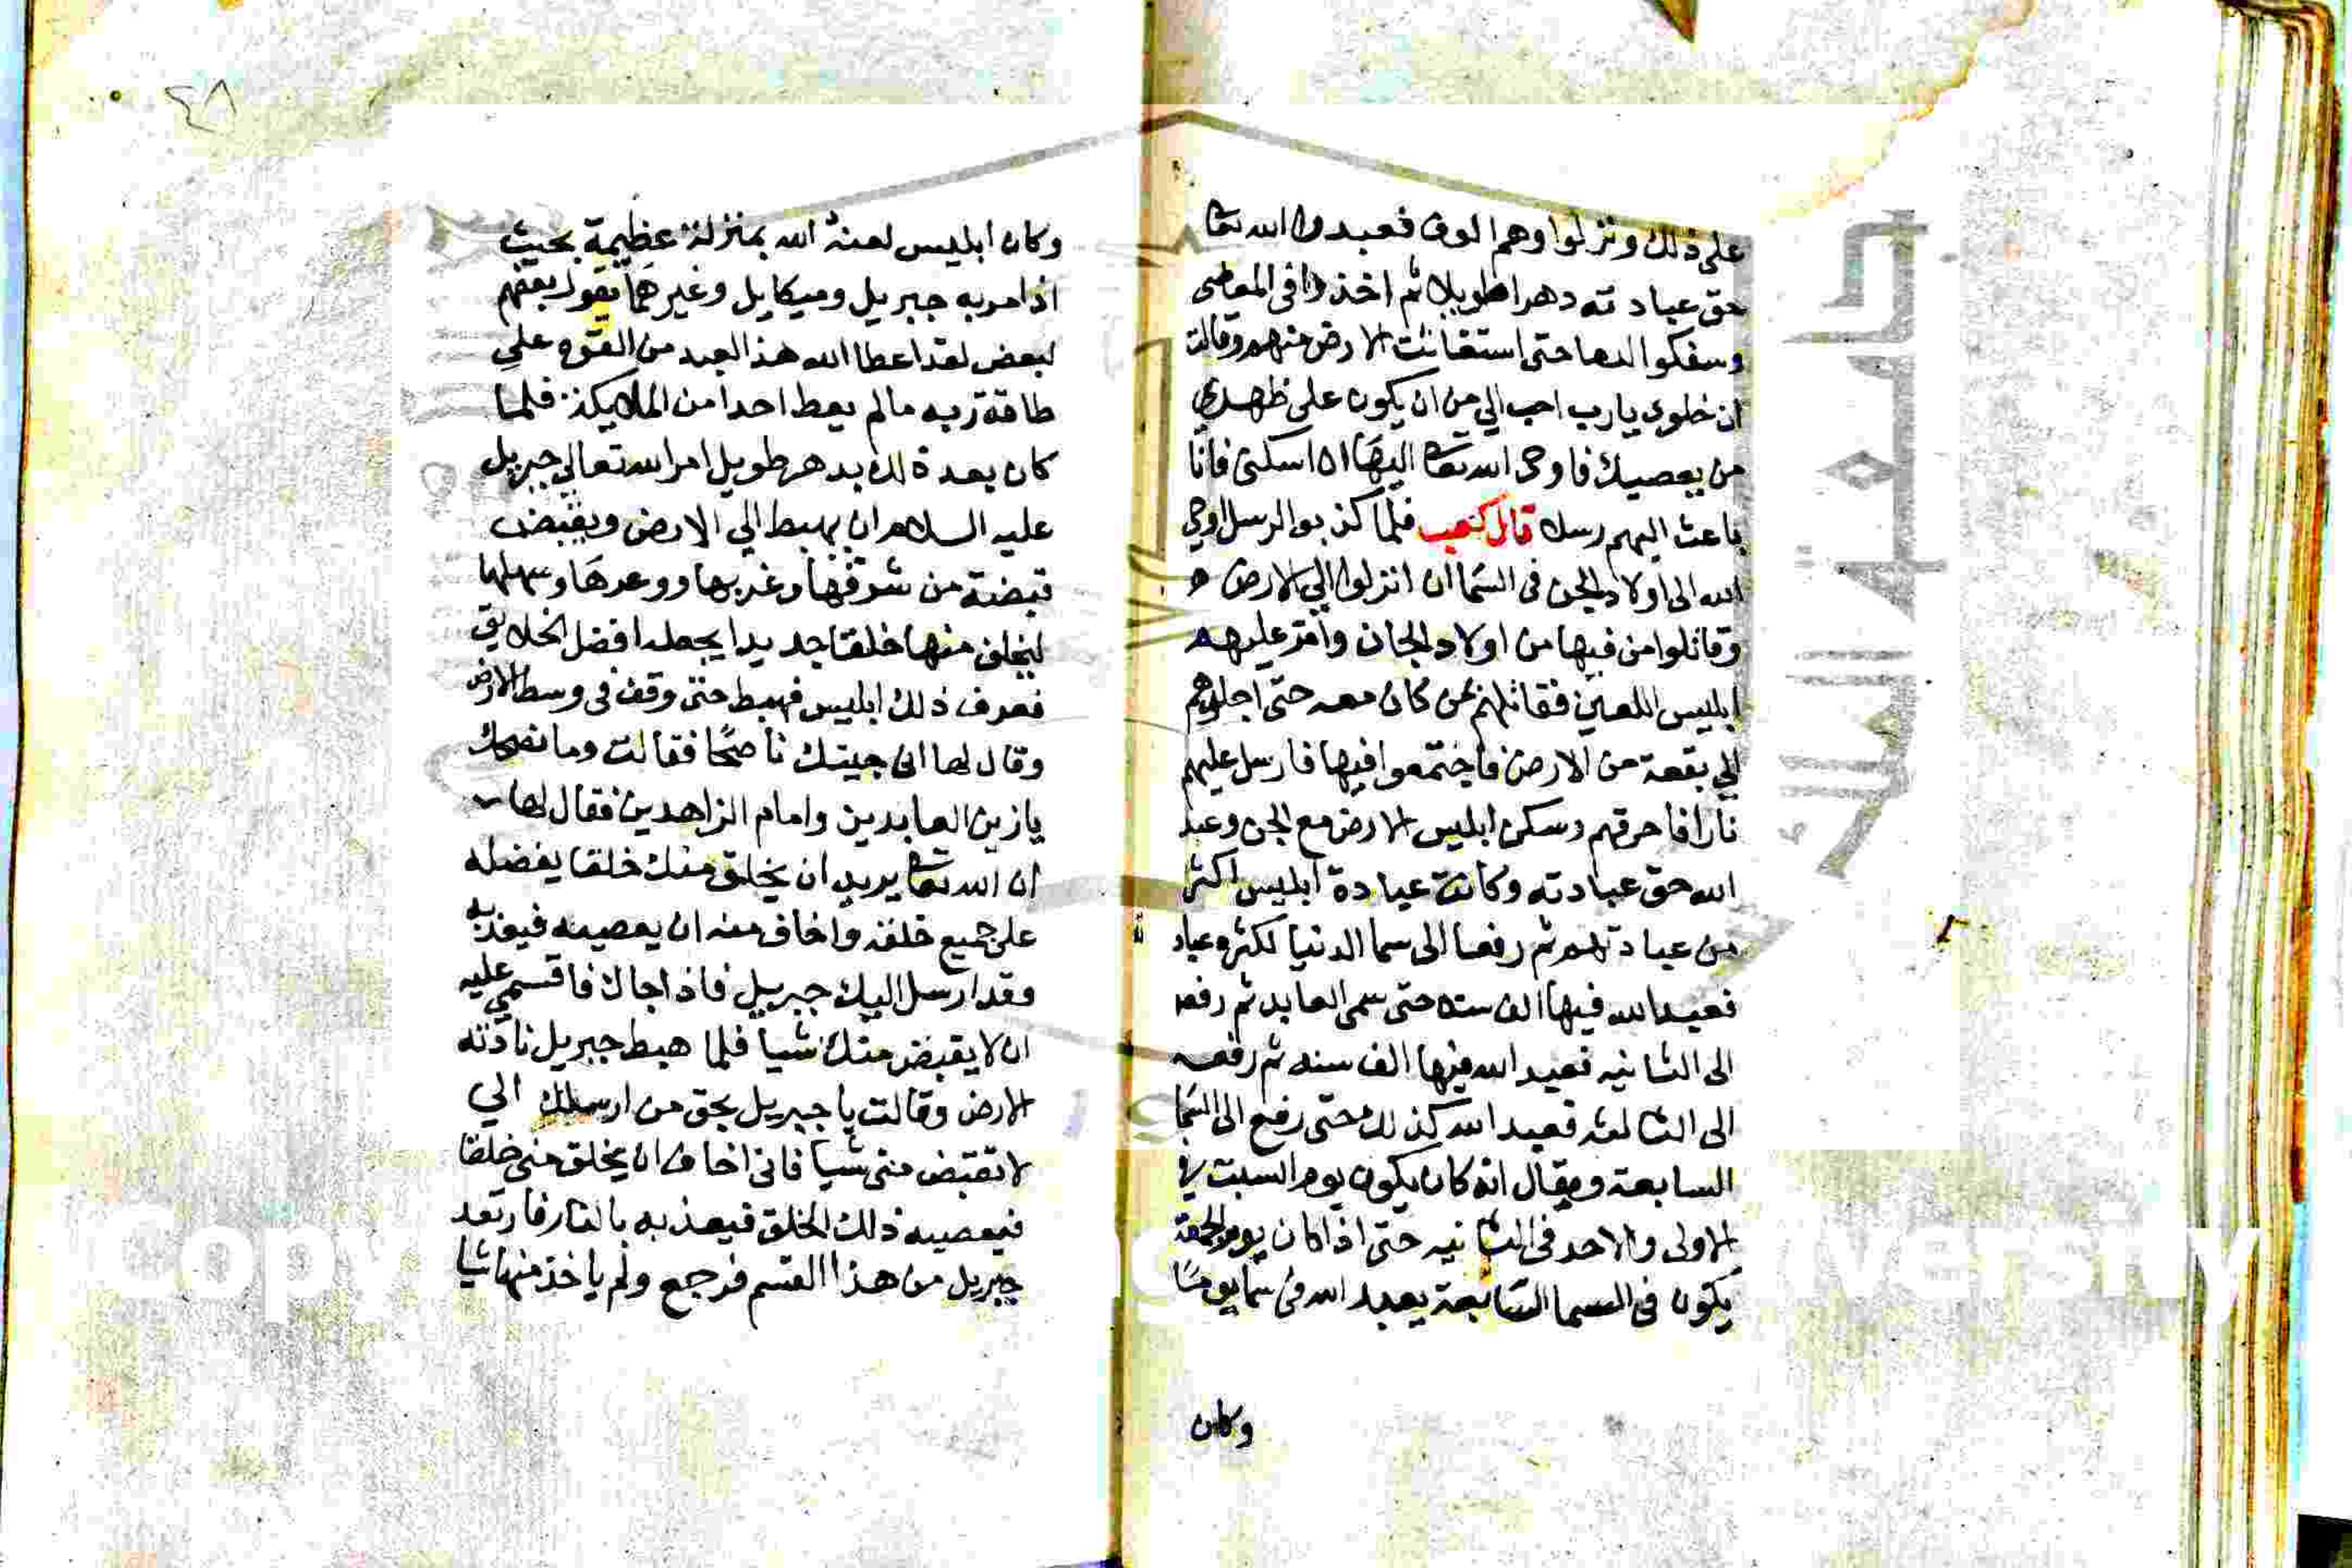 على ذلك ونزلوا وهم الوف فعبدوا الله تعا
حق عبادته دهرا طويلا ثم اخذوا فى المعاصى
وسفكوا الدما حتى استغاثت الارض منهم وقالت
ان خلوى يارب احب الي من ان يكون على ظهري
من يعصيك فاوحى الله تعا اليها ان اسكنى فانا
باعث اليهم رسلا قال كعب فلما كذبوا الرسل اوحى
الله الى اولاد الجن فى السما ان انزلوا الي الارض
وقاتلوا من فيها من اولاد الجان وامر عليهم
ابليس اللعين فقاتلهم بمن كان معه حتى اجلاهم
الي بقعة من الارض فاجتمعوا فيها فارسل عليهم
نارا فاحرقهم وسكن ابليس الارض مع الجن وعبد
الله حق عبادته وكانت عبادة ابليس اكثر
من عبادتهم ثم رفعه الى سما الدنيا لكثره عباد
فعبد الله فيها الف سنه حتى سمى العابد ثم رفعه
الى الثانيه فعبد الله فيها الف سنه ثم رفعه
الى الثالثه فعبد الله كذلك حتى رفع الى السما
السابعة ويقال انه كان يكون يوم السبت في
الاولى والاحد فى الثانيه حتى اذا كان يوم الجمعة
يكون فى السما السابعة يعبد الله فى سما يوما
وكان
٤٨
وكان ابليس لعنه الله بمنزلة عظيمة بحيث
اذا مر به جبريل وميكايل وغيرهما يقول بعضهم
لبعض لقد اعطا الله هذا العبد من القوه علي
طاقة ربه مالم يعط احدا من الملايكة فلما
كان بعد ذلك بدهر طويل امر الله تعالي جبريل
عليه السلام ان يهبط الي الارض ويقبض
قبضة من شرقها وغربها ووعرها وسهلها
ليخلق منها خلقا جديدا يجعله افضل الخلايق
فعرف ذلك ابليس فهبط حتى وقف فى وسط الارض
وقال لها انى جيتك ناصحا فقالت وما نصحك
يازين العابدين وامام الزاهدين فقال لها
ان الله تعا يريد ان يخلق منك خلقا يفضله
على جميع خلقه واخاف منه ان يعصيه فيعذبه
وقد ارسل اليك جبريل فاذا جاك فاقسمي عليه
ان لا يقبض منك شيا فلما هبط جبريل نادته
الارض وقالت يا جبريل بحق من ارسلك الي
لا تقبض منى شيا فانى اخاف ان يخلق منى خلقا
فيعصيه ذلك الخلق فيعذبه بالنار فارتعد
جبريل من هذا القسم فرجع ولم ياخذ منها شيا